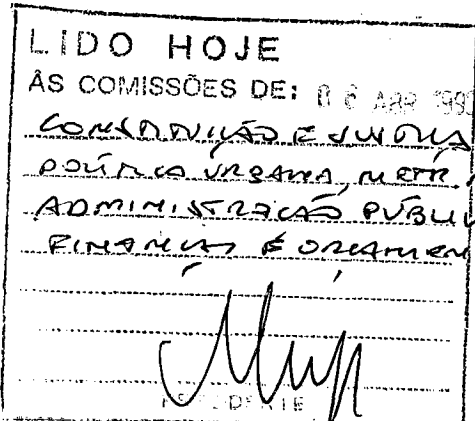 LIDO HOJE
ÀS COMISSÕES DE: 06 ABR 199
CONSTITUIÇÃO E JUSTIÇA
POLÍTICA URBANA, METR.
ADMINISTRAÇÃO PÚBLI
FINANÇAS E ORÇAMEN
PRESIDENTE